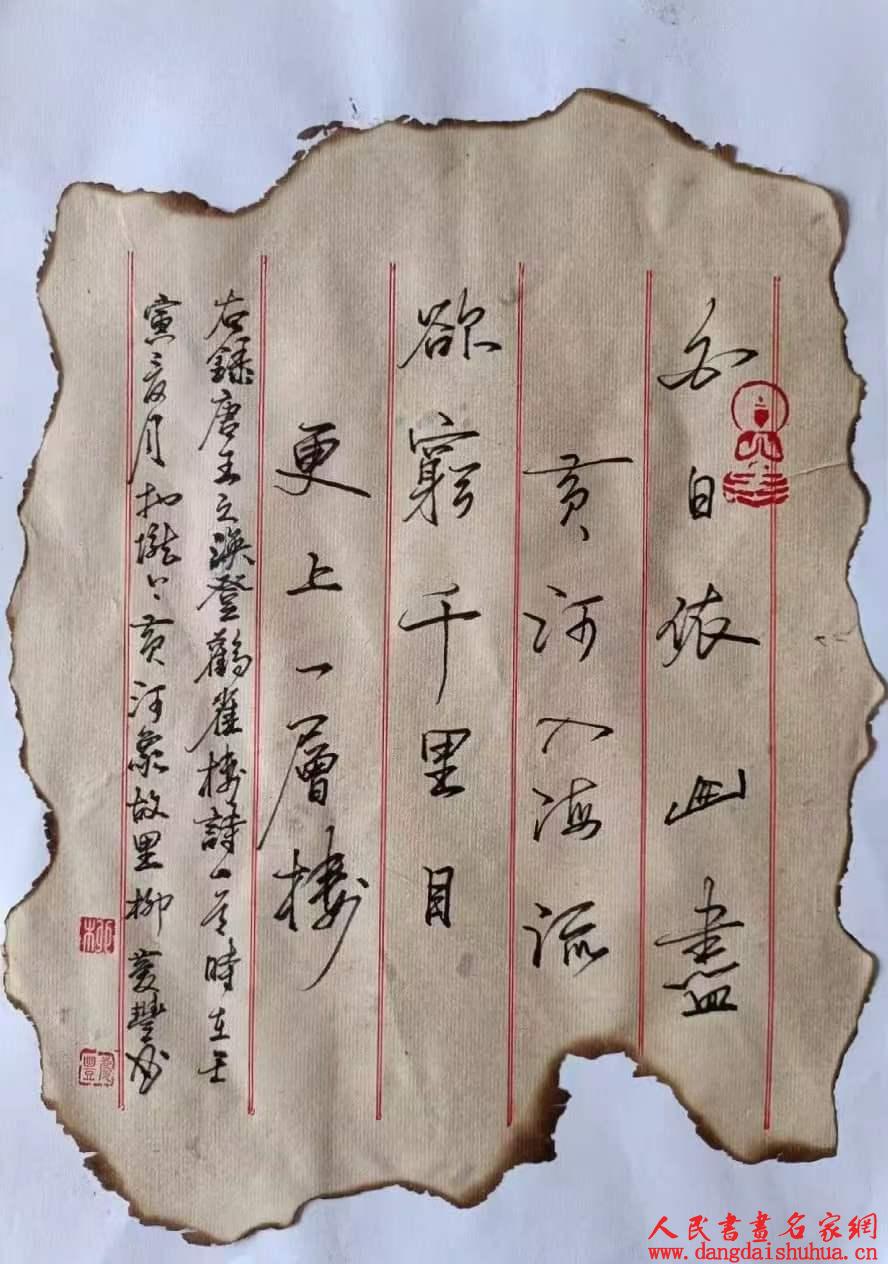 白日依山盡
黄河入海流
欲窮千里目
更上一層樓
右録唐王之涣登鸛雀樓詩一首時在壬
寅夏月於隴上黄河象故里柳彦豐书
柳
人民書畫名家網
www.dangdaishuhua.cn